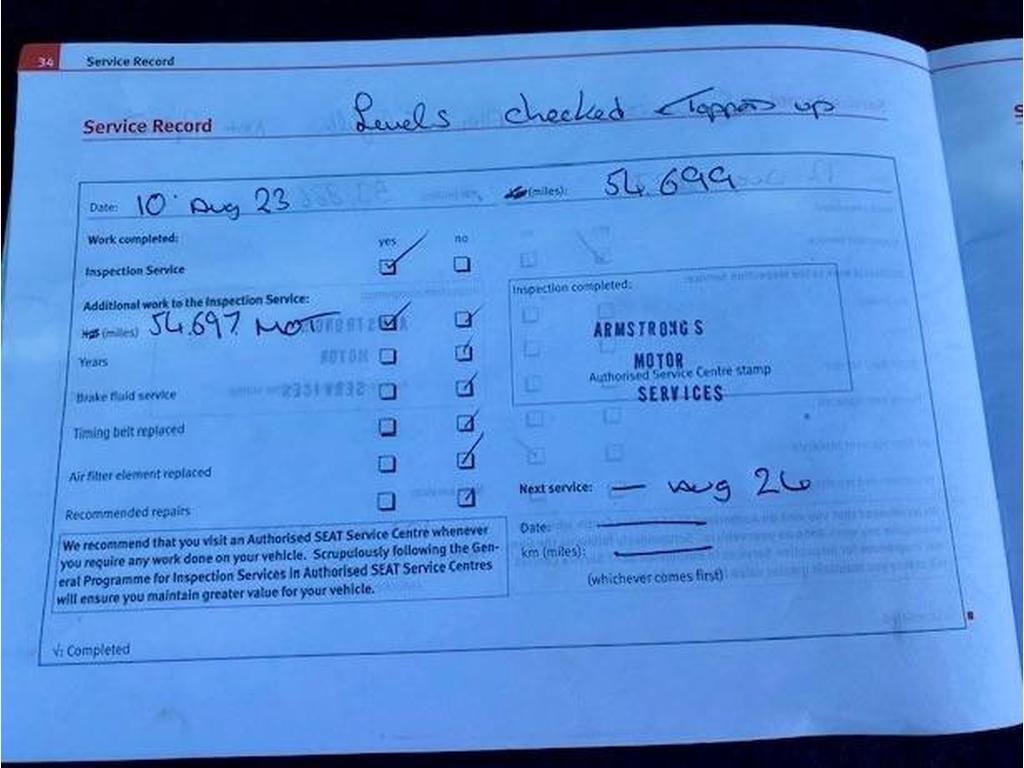 34 Service Record
Service Record Levels checked & Topped up
Date: 10 Aug 23 km (miles): 54.699
Work completed: yes no
Inspection Service
Additional work to the Inspection Service:
km (miles) 54.697 MOT
Years
Brake fluid service
Timing belt replaced
Air filter element replaced
Recommended repairs
Inspection completed:
ARMSTRONGS
MOTOR
Authorised Service Centre stamp
SERVICES
Next service: — Aug 26
Date: —
km (miles): —
(whichever comes first)
We recommend that you visit an Authorised SEAT Service Centre whenever
you require any work done on your vehicle. Scrupulously following the Gen-
eral Programme for Inspection Services in Authorised SEAT Service Centres
will ensure you maintain greater value for your vehicle.
√: Completed
S